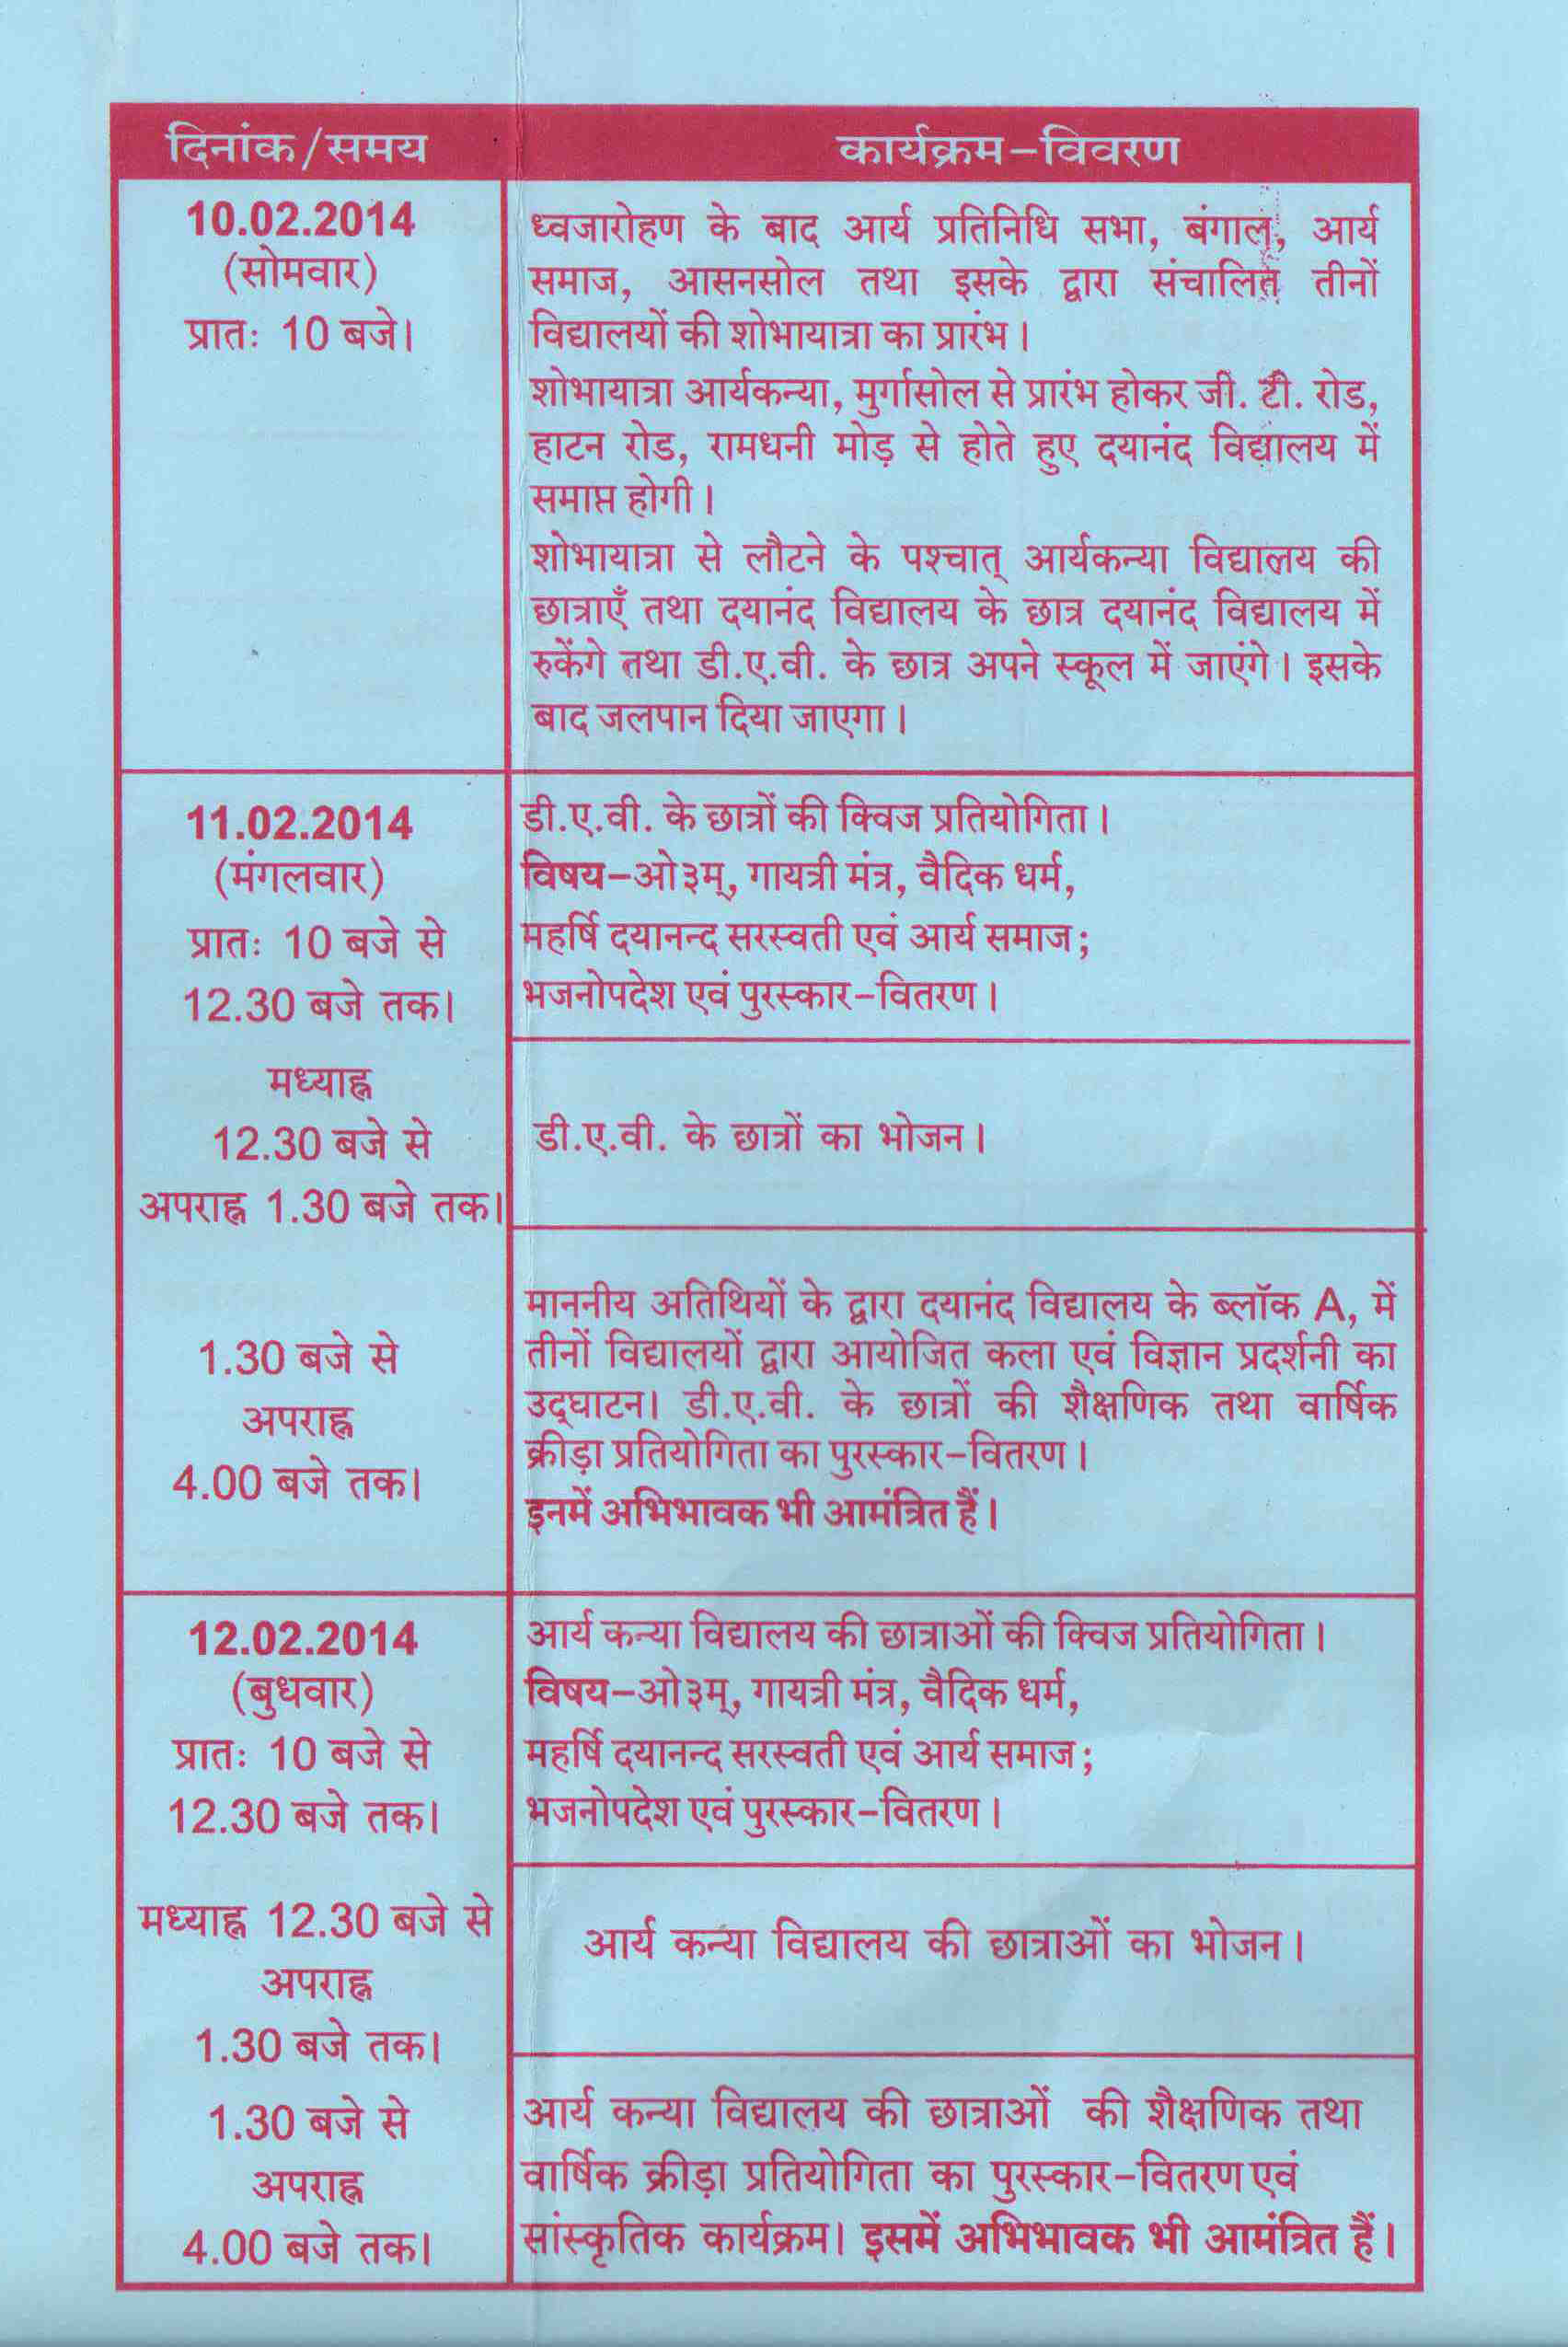 दिनांक/समय
कार्यक्रम-विवरण
10.02.2014
(सोमवार)
प्रातः 10 बजे।
ध्वजारोहण के बाद आर्य प्रतिनिधि सभा, बंगाल, आर्य
समाज, आसनसोल तथा इसके द्वारा संचालित तीनों
विद्यालयों की शोभायात्रा का प्रारंभ।
शोभायात्रा आर्यकन्या, मुर्गासोल से प्रारंभ होकर जी. टी. रोड,
हाटन रोड, रामधनी मोड़ से होते हुए दयानंद विद्यालय में
समाप्त होगी।
शोभायात्रा से लौटने के पश्चात् आर्यकन्या विद्यालय की
छात्राएँ तथा दयानंद विद्यालय के छात्र दयानंद विद्यालय में
रुकेंगे तथा डी.ए.वी. के छात्र अपने स्कूल में जाएंगे। इसके
बाद जलपान दिया जाएगा।
11.02.2014
(मंगलवार)
प्रातः 10 बजे से
12.30 बजे तक।
डी.ए.वी. के छात्रों की क्विज प्रतियोगिता।
विषय-ओ३म्, गायत्री मंत्र, वैदिक धर्म,
महर्षि दयानन्द सरस्वती एवं आर्य समाज;
भजनोपदेश एवं पुरस्कार-वितरण।
मध्याह्न
12.30 बजे से
अपराह्न 1.30 बजे तक।
डी.ए.वी. के छात्रों का भोजन।
1.30 बजे से
अपराह्न
4.00 बजे तक।
माननीय अतिथियों के द्वारा दयानंद विद्यालय के ब्लॉक A, में
तीनों विद्यालयों द्वारा आयोजित कला एवं विज्ञान प्रदर्शनी का
उद्‌घाटन। डी.ए.वी. के छात्रों की शैक्षणिक तथा वार्षिक
क्रीड़ा प्रतियोगिता का पुरस्कार-वितरण।
इनमें अभिभावक भी आमंत्रित हैं।
12.02.2014
(बुधवार)
प्रातः 10 बजे से
12.30 बजे तक।
आर्य कन्या विद्यालय की छात्राओं की क्विज प्रतियोगिता।
विषय-ओ३म्, गायत्री मंत्र, वैदिक धर्म,
महर्षि दयानन्द सरस्वती एवं आर्य समाज;
भजनोपदेश एवं पुरस्कार-वितरण।
मध्याह्न 12.30 बजे से
अपराह्न
1.30 बजे तक।
आर्य कन्या विद्यालय की छात्राओं का भोजन।
1.30 बजे से
अपराह्न
4.00 बजे तक।
आर्य कन्या विद्यालय की छात्राओं की शैक्षणिक तथा
वार्षिक क्रीड़ा प्रतियोगिता का पुरस्कार-वितरण एवं
सांस्कृतिक कार्यक्रम। इसमें अभिभावक भी आमंत्रित हैं।